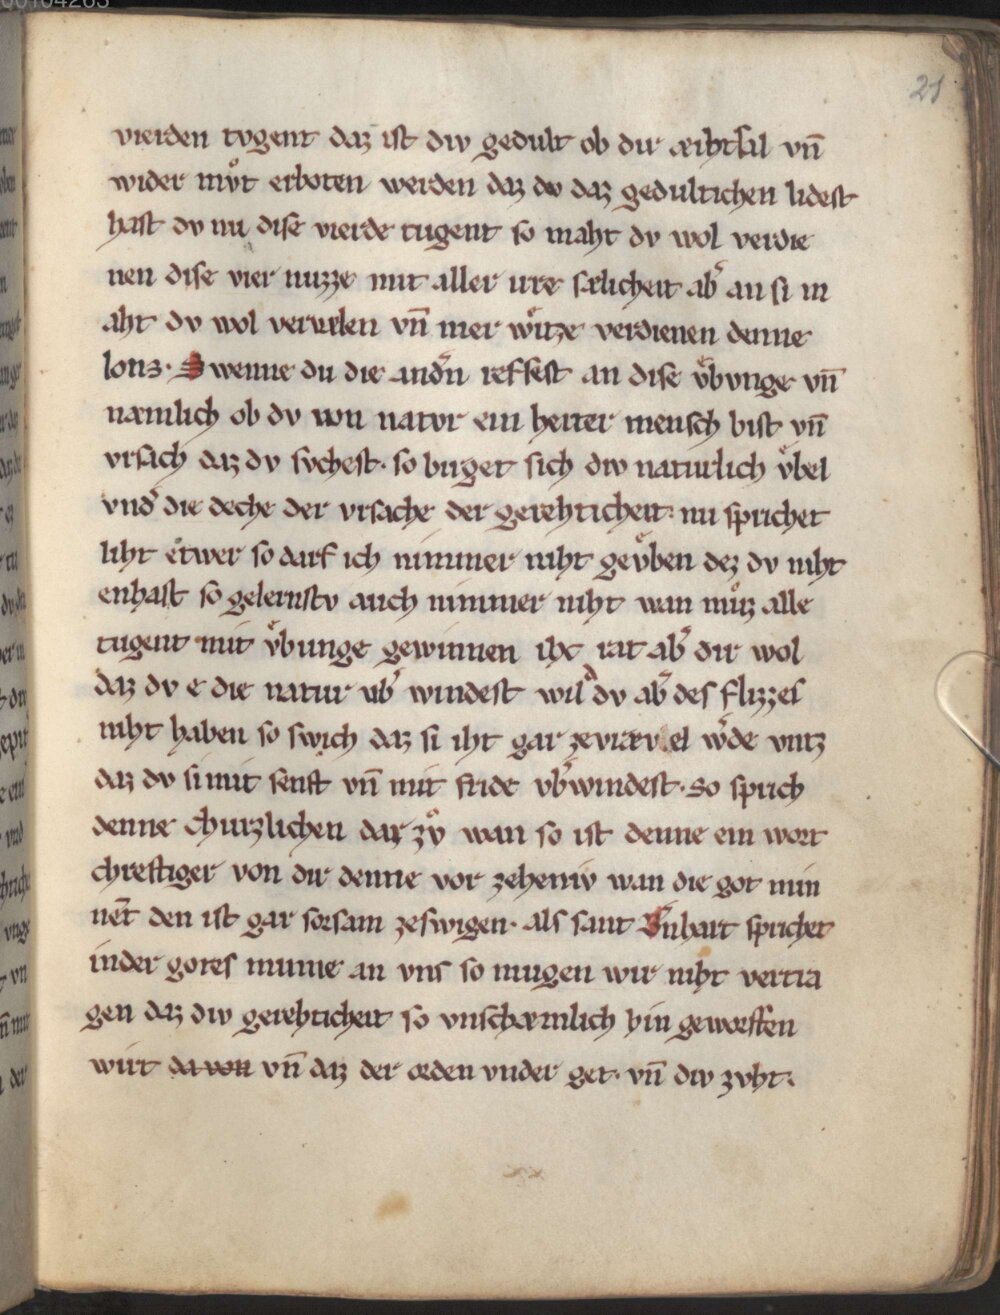 21
vierden tvgent daz ist div gedult ob dir æihtsal vn̄
wider mvͦt erboten werden daz dv daz gedultichen lidest
hast dv nu dise vierde tugent so maht dv wol verdie
nen dise vier nuzze mit aller ire sælicheit ab̓ an si m
aht dv wol verurlen vn̄ mer wîtze verdienen denne
lons. Swenne du die andn̓ reffest an dise vͤbvnge vn̄
næmlich ob dv von natvr ein herter mensch bist vn̄
vrsach daz dv svchest. so birget sich div naturlich vͤbel
vnd̓ die deche der vrsache der gerehticheit. nu sprichet
liht etwer so darf ich nimmer niht gevͤben dez dv niht
enhast so gelernstv auch nimmer niht wan muͤz alle
tugent mit vͤbunge gewinnen ich rat ab̓ dir wol
daz dv e die natur vb̓ windest wild dv ab̓ des flizzes
niht haben so swich daz si iht gar zeviævel w̓de vntz
daz dv si mit senft vn̄ mit fride vb̓windest. So sprich
denne churzlichen dar zvͦ wan so ist denne ein wort
chreftiger von dir denne vor zeheniv wan die got min
net̓ den ist gar sorsam zeswigen. als sant B̓nhart sprichet
inder gotes minne an vns so mugen wir niht vertra
gen daz div gerehticheit so vnschæmlich hin geworffen
wirt da von vn̄ daz der orden vnder get. vn̄ div zvht.